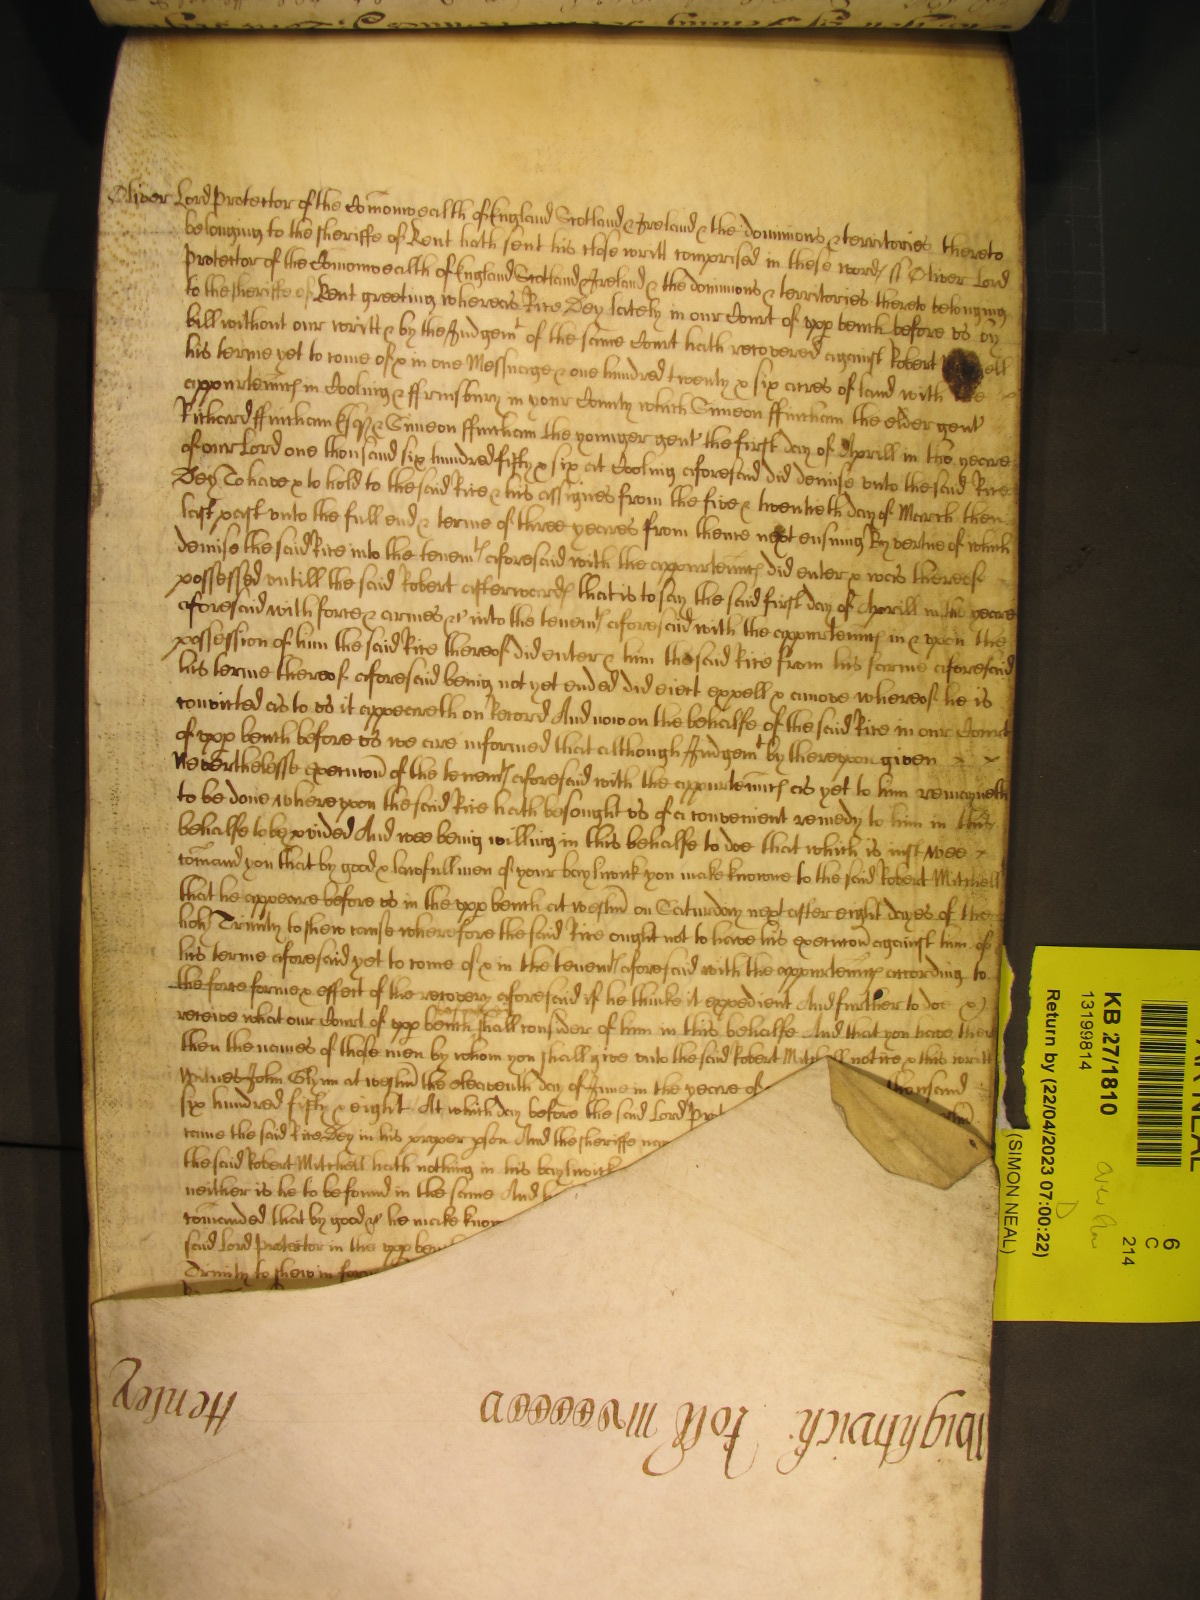 Oliver Lord Protector of the Comonwealth of England Scotland & Ireland & the dominions & territories thereto
belonging to the sheriffe of Kent hath sent his close writt comprised in these word ss Oliver Lord
Protector of the Comonwealth of England Scotland & Ireland & the dominions & territories thereto belonging
to the sheriffe of Kent greeting whereas Rice Dey lately in our Court of upp bench before us by
bill without our writt & by the Judgemt of the same Court hath recovered against Robert ell
his terme yet to come of & in one Messuage & one hundred twenty & six acres of land with
appurtenncs in Cooling & ffrinsbury in your County which Simeon ffincham the elder gent
Richard ffincham Esqr & Simeon ffincham the younger gent the first day of Aprill in the yeare
of our Lord one thousand six hundred fifty & six at Cooling aforesaid did demise unto the said Rice
Dey To have & to hold to the said Rice & his assignes from the five & twentieth day of March then
last past unto the full end & terme of three yeares from thence next ensuing By vertue of which
demise the said Rice into the tenemts aforesaid with the appurtenncs did enter & was thereof
possessed untill the said Robert afterwards that is to say the said first day of Aprill in the yeare
aforesaid with force & armes &c into the tenemts aforesaid with the appurtenncs in & upon the
possession of him the said Rice thereof did enter & him the said Rice from his farme aforesaid
his terme thereof aforesaid being not yet ended did eject expell & amove whereof he is
convicted as to us it appeareth on Record And now on the behalfe of the said Rice in our Court
of upp bench before us we are informed that although Judgemt be thereupon given
Neverthelesse execucon of the tenemts aforesaid with the appurtenncs as yet to him remayneth
to be done whereupon the said Rice hath besought us of a convenient remedy to him in this
behalfe to be pvided And wee being willing in this behalfe to doe that which is just Wee
comand you that by good & lawfull men of your baylywick you make knowne to the said Robert Mitchell
that he appeare before us in the upp bench at Westmr on Saturday next after eight dayes of the
holy Trinity to shew cause wherefore the said Rice ought not to have his execucon against him of
his terme aforesaid yet to come of & in the tenemts aforesaid with the appurtenncs according to
the force forme & effect of the recovery aforesaid if he thinke it expedient And further to doe &
receive what our Court of upp bench shall consider of him in this behalfe And that you have there
then the names of those men by whom you shall give unto the said Robert Mitchell notice & this writt
Witnes John Glynn at Westmr the eleaventh day of June in the yeare of thousand
six hundred fifty & eight At which day before the said Lord Prot
came the said Rice Dey in his proper pson And the sheriffe
the said Robert Mitchell hath nothing in his baylywick
neither is he to be found in the same And
comanded that by good &c he make know
said Lord Protector in the upp ben
Trinity to shew in form
Wightwick. Roll
Henley
KB 27/1810
13199814
Return by (22/04/2023 07:00:22)
(SIMON NEAL)
6
C
214